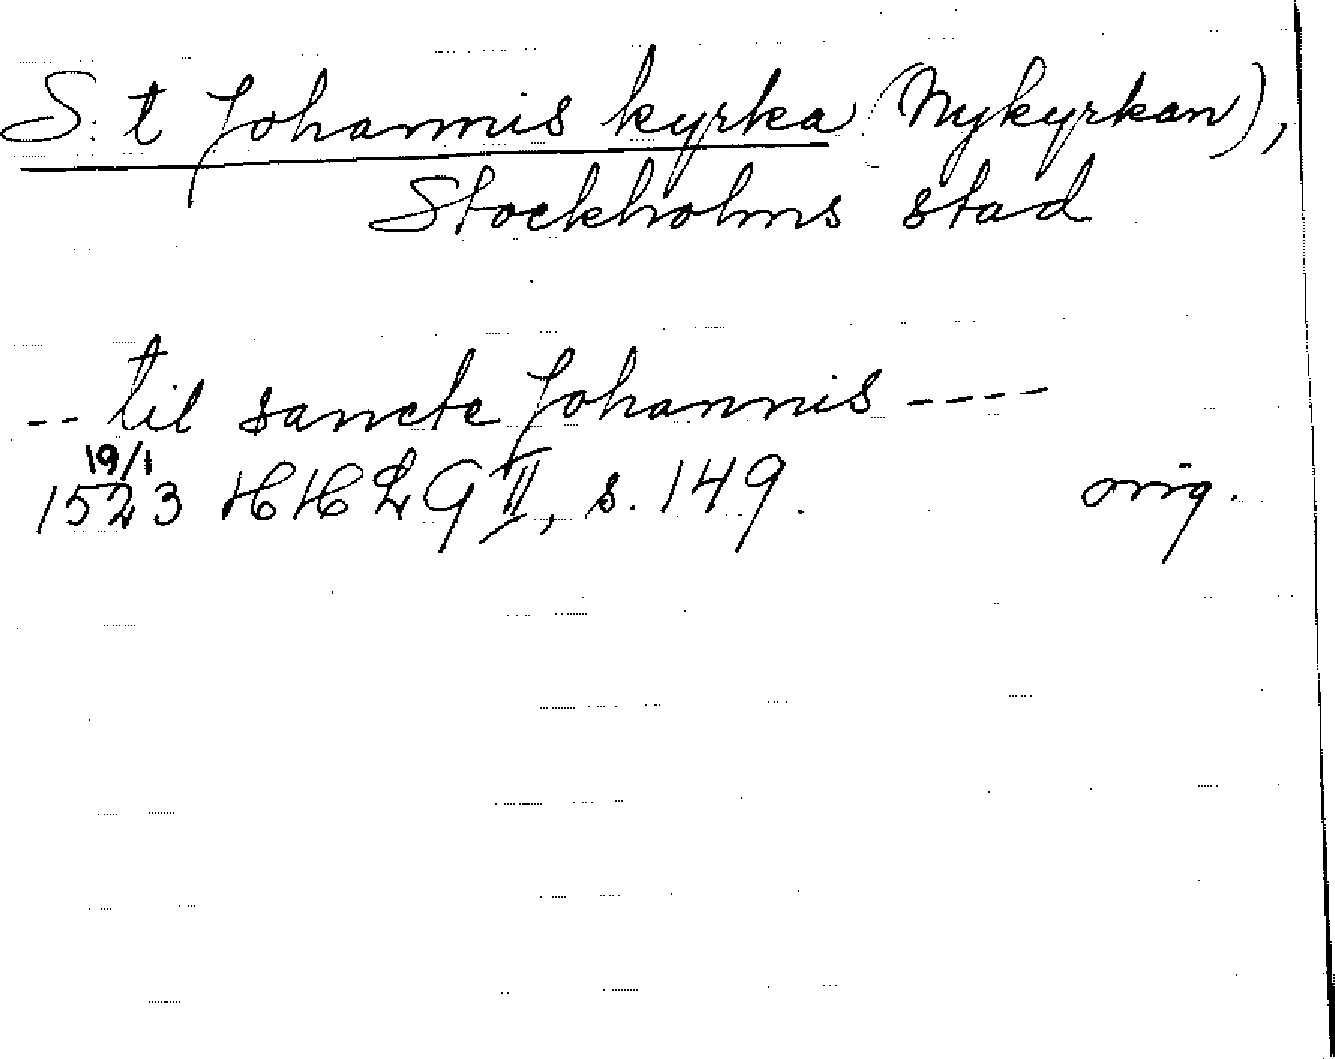 S:t Johannis kyrka (Nykyrkan),
Stockholms stad
-- til sancte Johannis ----
19/1
1523 HHLG II, s. 149. orig.